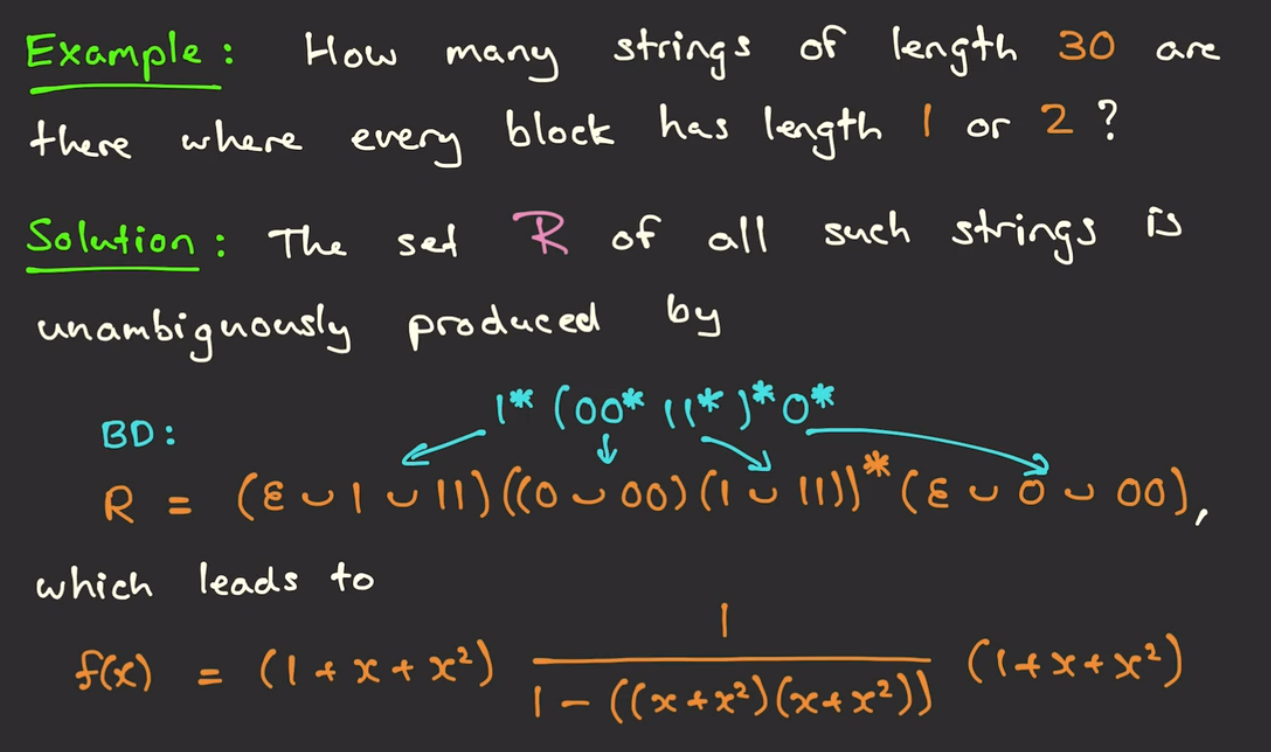 Example: How many strings of length 30 are
there where every block has length 1 or 2?
Solution: The set R of all such strings is
unambiguously produced by
BD: 1* (00* 11*)* 0*
R = (ε ∪ 1 ∪ 11)((0 ∪ 00)(1 ∪ 11))* (ε ∪ 0 ∪ 00),
which leads to
f(x) = (1 + x + x²) 1 / (1 - ((x + x²)(x + x²))) (1 + x + x²)